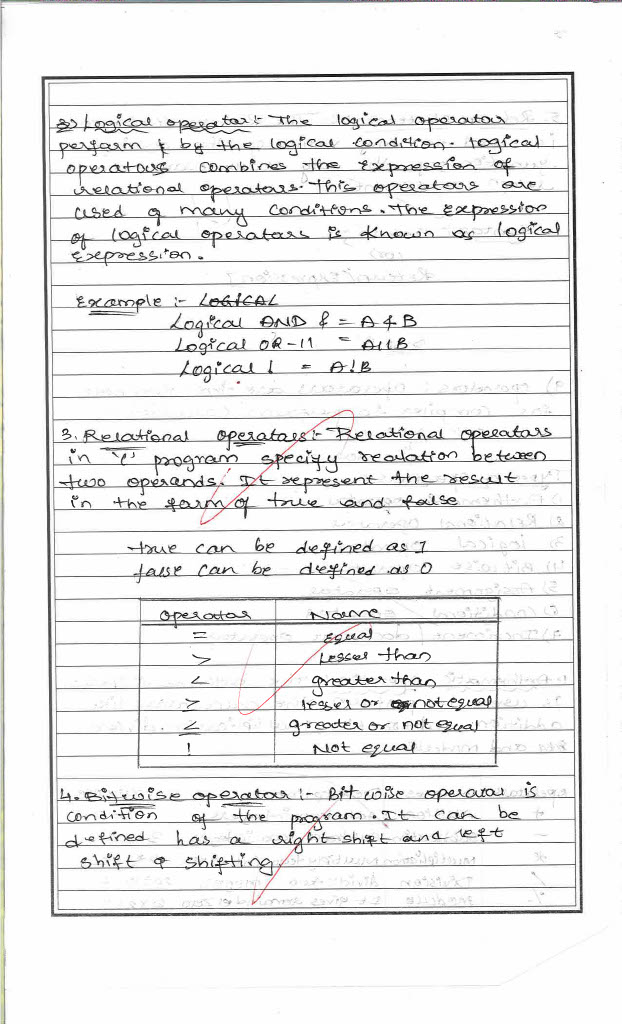 2) Logical operator :- The logical operators
perform & by the logical condition. logical
operators combines the Expression of
relational operators. This operators are
used of many conditions. The Expression
of logical operators is known as logical
Expression.
Example :- LOGICAL
Logical AND & = A & B
Logical OR - 11 = A11B
Logical ! = A!B
3. Relational operators :- Relational operators
in 'C' program specify realation between
two operands. It represent the result
in the form of true and false
true can be defined as 1
false can be defined as 0
operator Name
= equal
> Lesser than
< greater than
≥ lesser or not equal
≤ greater or not equal
! Not equal
4. Bitwise operator :- Bit wise operator is
condition of the program. It can be
defined has a right shift and left
shift & shifting.